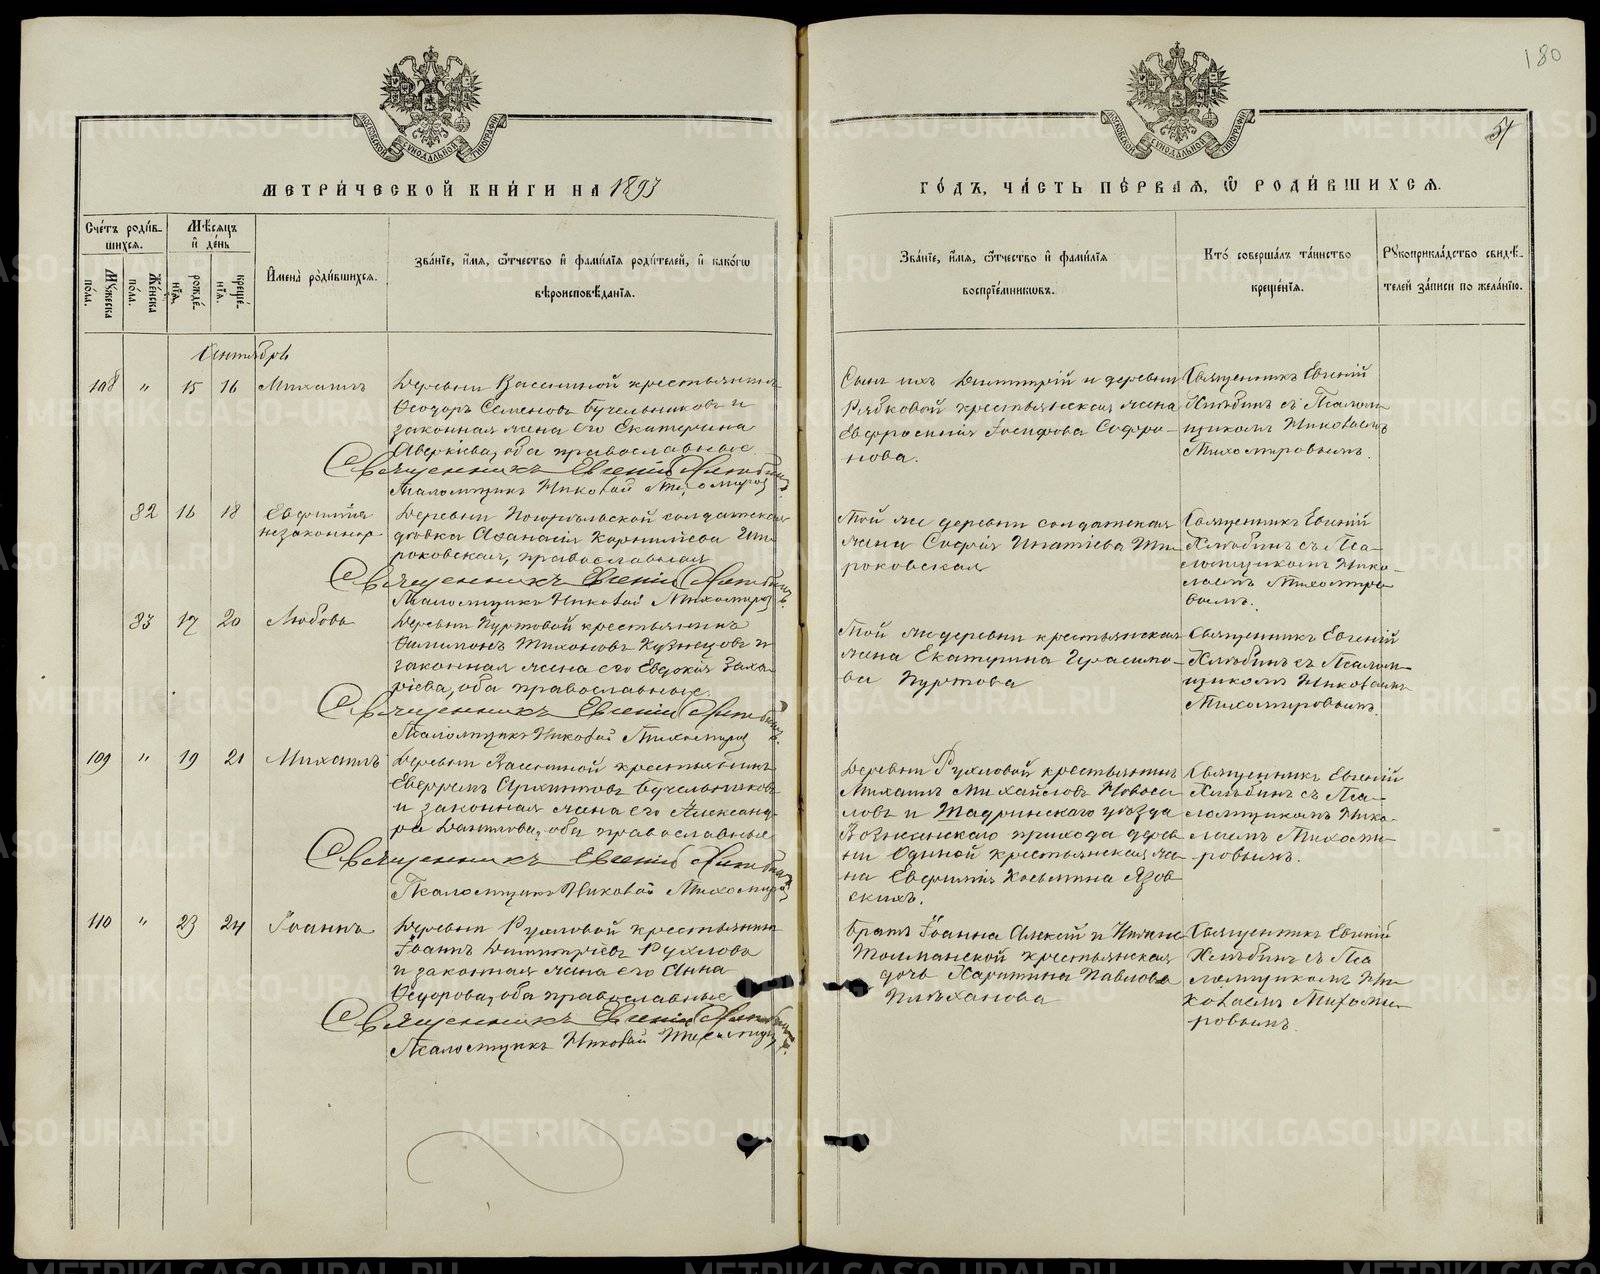 180
57
МЕТРИ́ЧЕСКОЙ КНИ́ГИ НА 1893
ГО́ДЪ, ЧА́СТЬ ПЕ́РВАЯ, Ѡ РОДИ́ВШИХСЯ.
Сче́тъ роди́в-
шихся.
Му́жеска по́ла.
Же́нска по́ла.
Мѣ́сяцъ и де́нь
рожде́-
нія.
креще́-
нія.
Имена̀ роди́вшихся.
Зва́ніе, и́мя, ѻ́тчество и фами́лія роди́телей, и како́гѡ
вѣроисповѣ́данія.
Зва́ніе, и́мя, ѻ́тчество и фами́лія
воспріе́мникѡвъ.
Кто̀ соверша́лъ та́инство
креще́нія.
Рꙋкоприкла́дство свидѣ́-
телей за́писи по жела́нію.
Сентябрь
108 " 15 16 Михаилъ
Деревни Васениной крестьянинъ
Ѳеодоръ Семеновъ Бучельниковъ и
законная жена его Екатерина
Аверкіева, оба православные
Священникъ Евгеній Хлѣбинъ
Псаломщикъ Николай Тихомиров
Сынъ ихъ Димитрій и деревни
Рябковой крестьянская жена
Евфросинія Іосифова Софро-
нова.
Священникъ Евгеній
Хлѣбинъ съ Псалом-
щикомъ Николаемъ
Тихомировымъ.
32 16 18 Евфимія
незаконнор
Деревни солдатская
дѣвка Аѳанасія Корниліева Ши-
роковская, православная
Священникъ Евгеній Хлѣбинъ
Псаломщикъ Николай Тихомиров
Той же деревни солдатская
жена Софія Игнатіева Ши-
роковская
Священникъ Евгеній
Хлѣбинъ съ Пса-
ломщикомъ Нико-
лаемъ Тихомиро-
вымъ.
33 17 20 Любовь
Деревни Пуртовой крестьянинъ
Филимонъ Тихоновъ Кузнецовъ и
законная жена его Евдокія Заха-
ріева, оба православные.
Священникъ Евгеній Хлѣбинъ
Псаломщикъ Николай Тихомиров
Той же деревни крестьянская
жена Екатерина Герасимо-
ва Пуртова
Священникъ Евгеній
Хлѣбинъ съ Псалом-
щикомъ Николаемъ
Тихомировымъ.
109 " 19 21 Михаилъ
Деревни Васениной крестьянинъ
Евфремъ Архиповъ Бучельниковъ
и законная жена его Александ-
ра Данилова, оба православные
Священникъ Евгеній Хлѣбинъ
Псаломщикъ Николай Тихомиров
Деревни Рухловой крестьянинъ
Михаилъ Михайловъ Новосе-
ловъ и Шадринскаго уѣзда
Вознесенскаго прихода дерев-
ни Одиной крестьянская же-
на Евфимія Косьмина Язов-
скихъ.
Священникъ Евгеній
Хлѣбинъ съ Пса-
ломщикомъ Нико-
лаемъ Тихоми-
ровымъ.
110 " 23 24 Іоаннъ
Деревни Рухловой крестьянинъ
Іоаннъ Димитріевъ Рухловъ
и законная жена его Анна
Ѳедорова, оба православные
Священникъ Евгеній Хлѣбинъ
Псаломщикъ Николай Тихомиров
Братъ Іоанна Алексій и
крестьянская
дочь Харитина Павлова
Плѣханова
Священникъ Евгеній
Хлѣбинъ съ Пса
ломщикомъ Ни-
колаемъ Тихоми-
ровымъ.